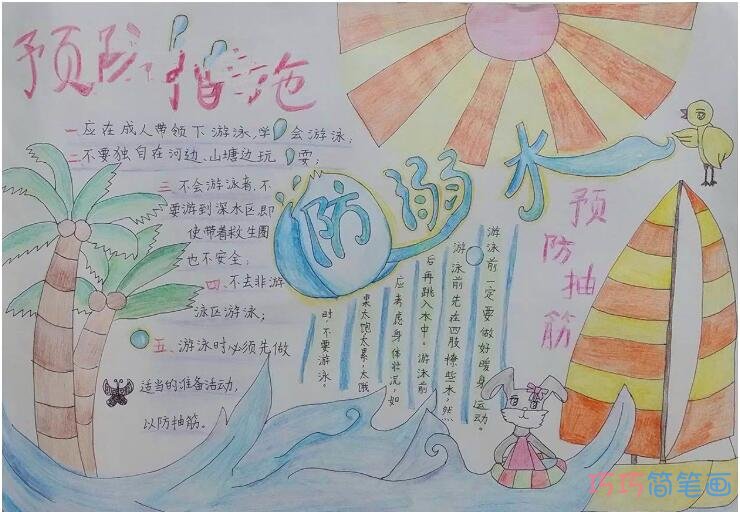 预防措施
一应在成人带领下游泳,学会游泳;
二不要独自在河边、山塘边玩耍;
三不会游泳者,不
要游到深水区即
使带着救生圈
也不安全;
四、不去非游
泳区游泳;
五、游泳时必须先做
适当的准备活动,
以防抽筋。
防溺水
预防抽筋
游泳前一定要做好暖身运动。
游泳前先在四肢撩些水,然
后再跳入水中。游泳前
应考虑身体状况,如
果太饱太累,太饿
时不要游泳。
巧巧简笔画